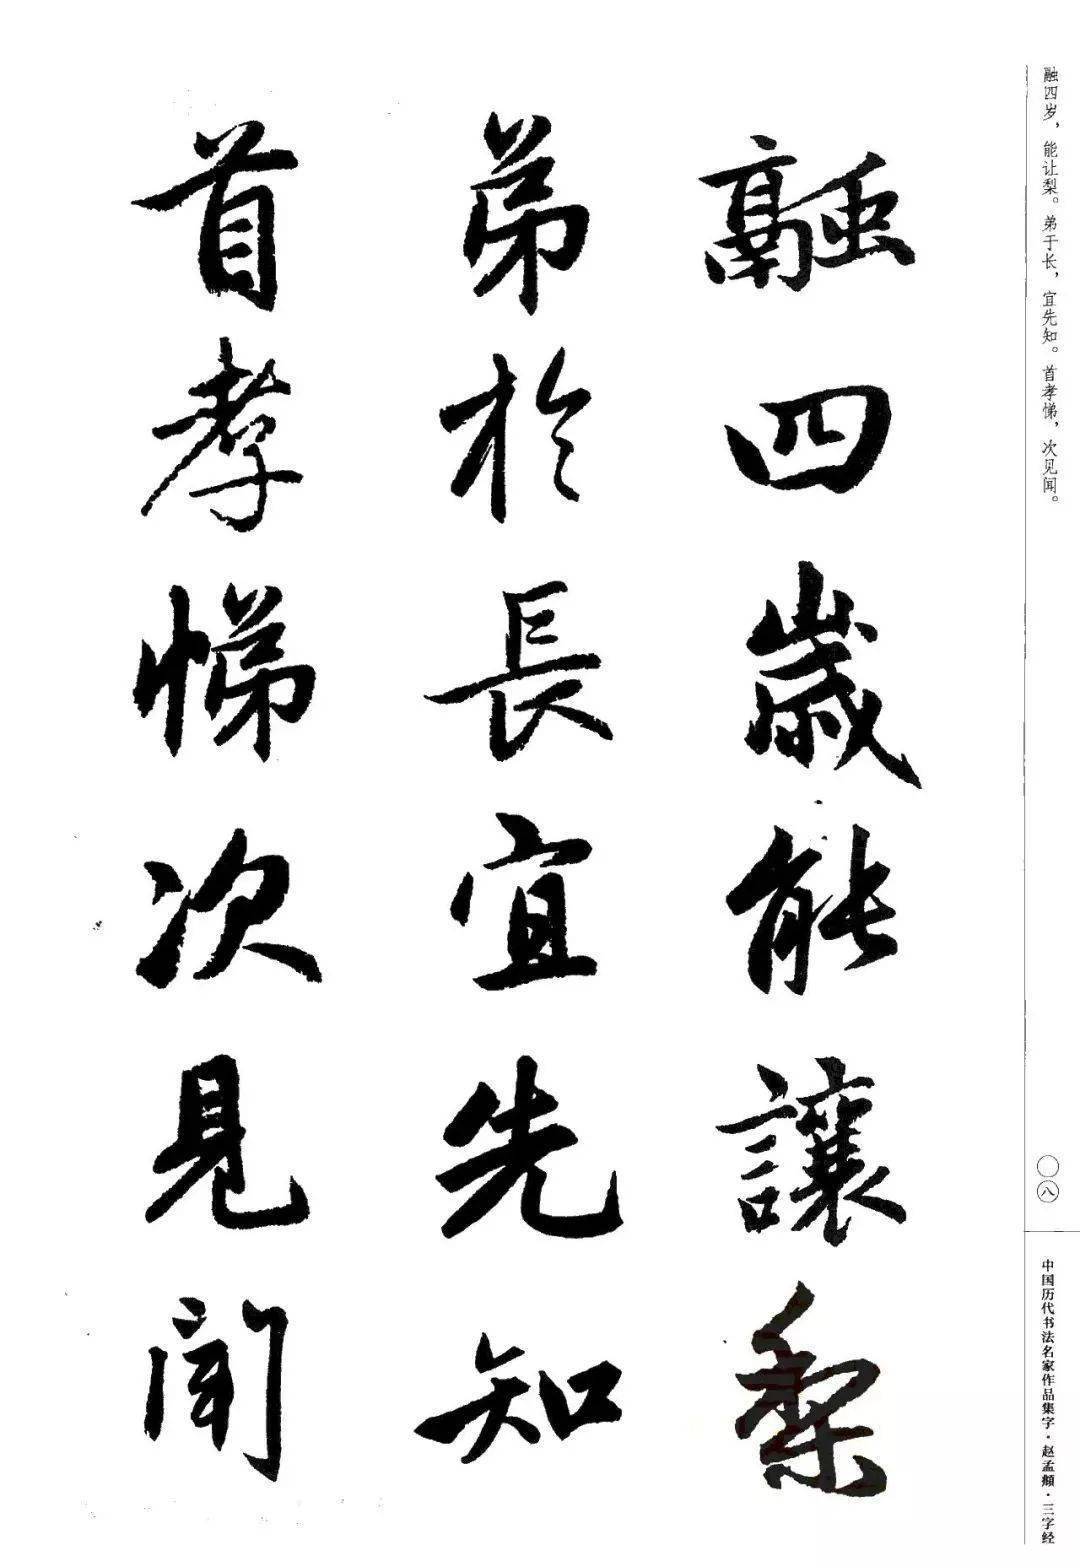 融四岁，能让梨。弟于长，宜先知。首孝悌，次见闻。
融四歲能讓梨
弟於長宜先知
首孝悌次見聞
〇八
中国历代书法名家作品集字·赵孟頫·三字经